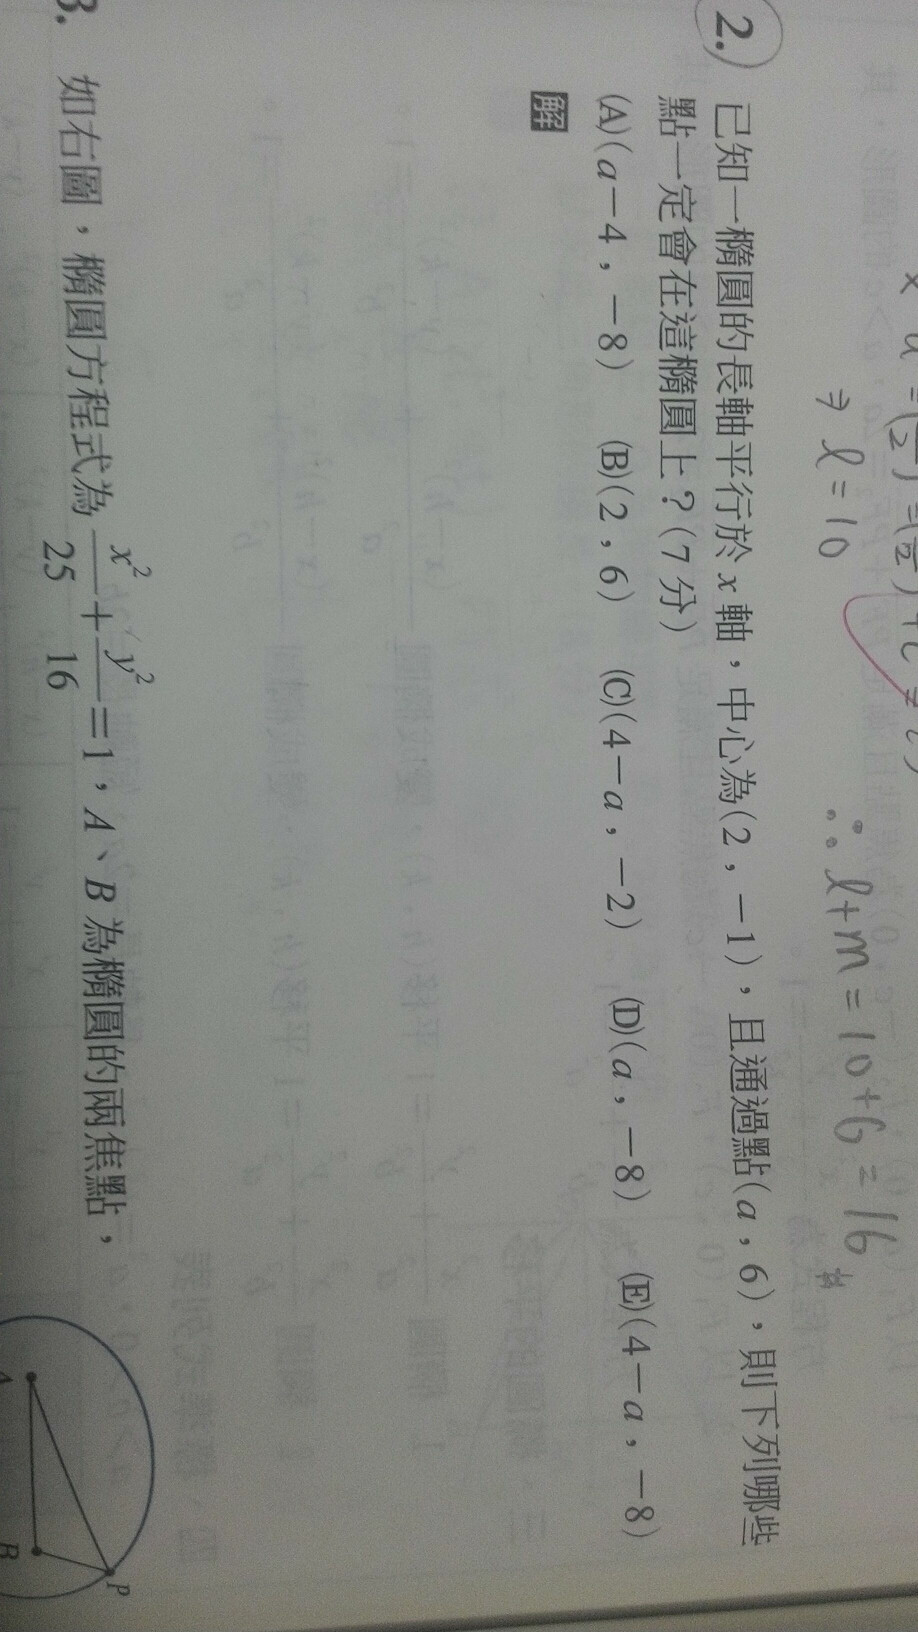 ⇒ l=10
∴ l+m=10+6=16 #
2. 已知一橢圓的長軸平行於 x 軸，中心為(2，−1)，且通過點(a，6)，則下列哪些
點一定會在這橢圓上？(7 分)
(A)(a−4，−8) (B)(2，6) (C)(4−a，−2) (D)(a，−8) (E)(4−a，−8)
解
3. 如右圖，橢圓方程式為 x²/25 + y²/16 = 1，A、B 為橢圓的兩焦點，
P
A B